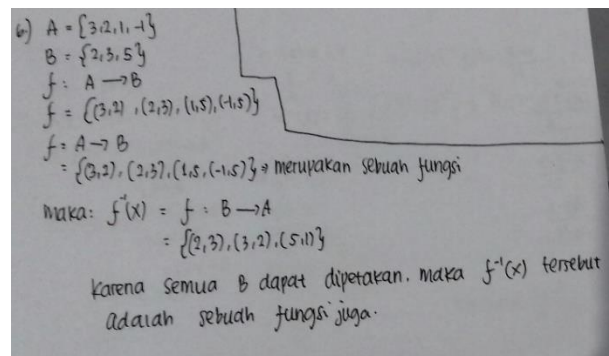 6.) A = {3,2,1,-1}
B = {2,3,5}
f : A → B
f = {(3,2) , (2,3), (1,5), (-1,5)}
f = A → B
= {(3,2), (2,3), (1,5, (-1,5)} → merupakan sebuah fungsi
maka: f⁻¹(x) = f : B → A
= {(2,3), (3,2), (5,1)}
karena semua B dapat dipetakan. maka f⁻¹(x) tersebut
adalah sebuah fungsi juga.